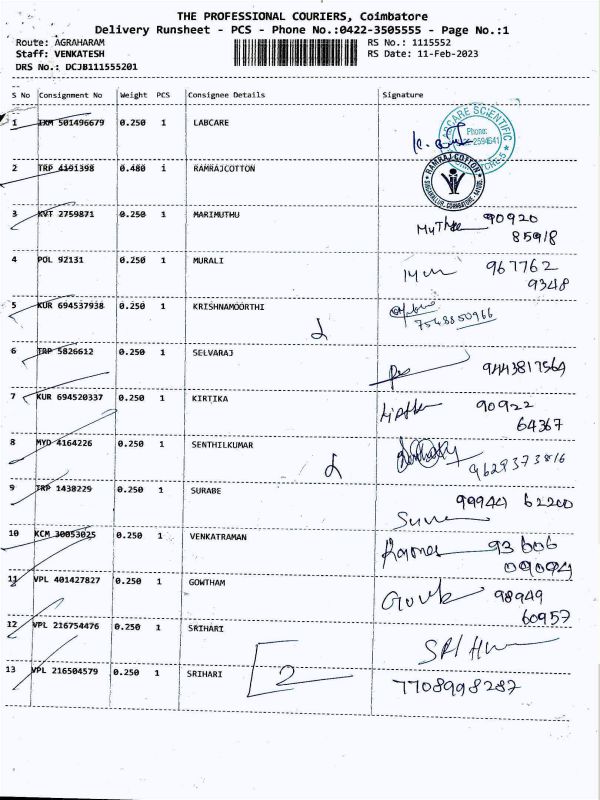 THE PROFESSIONAL COURIERS, Coimbatore
Delivery Runsheet - PCS - Phone No.:0422-3505555 - Page No.:1
Route: AGRAHARAM RS No.: 1115552
Staff: VENKATESH RS Date: 11-Feb-2023
DRS No.: DCJB111555201
S No Consignment No Weight PCS Consignee Details Signature
1 IXM 501496679 0.250 1 LABCARE
LABCARE SCIENTIFIC
Phone:
2594641
2 TRP 4191398 0.480 1 RAMRAJCOTTON
RAMRAJ COTTON
SINGANALLUR, COIMBATORE
3 KVT 2759871 0.250 1 MARIMUTHU
90920
85918
4 POL 92131 0.250 1 MURALI
967762
9348
5 KUR 694537938 0.250 1 KRISHNAMOORTHI
7548850966
6 TRP 5826612 0.250 1 SELVARAJ
9443817564
7 KUR 694520337 0.250 1 KIRTIKA
90922
64367
8 MYD 4164226 0.250 1 SENTHILKUMAR
9629373816
9 TRP 1438229 0.250 1 SURABE
99944 62200
10 KCM 30053025 0.250 1 VENKATRAMAN
93606
09094
11 VPL 401427827 0.250 1 GOWTHAM
98949
60957
12 VPL 216754476 0.250 1 SRIHARI
13 VPL 216504579 0.250 1 SRIHARI 2
7708998287